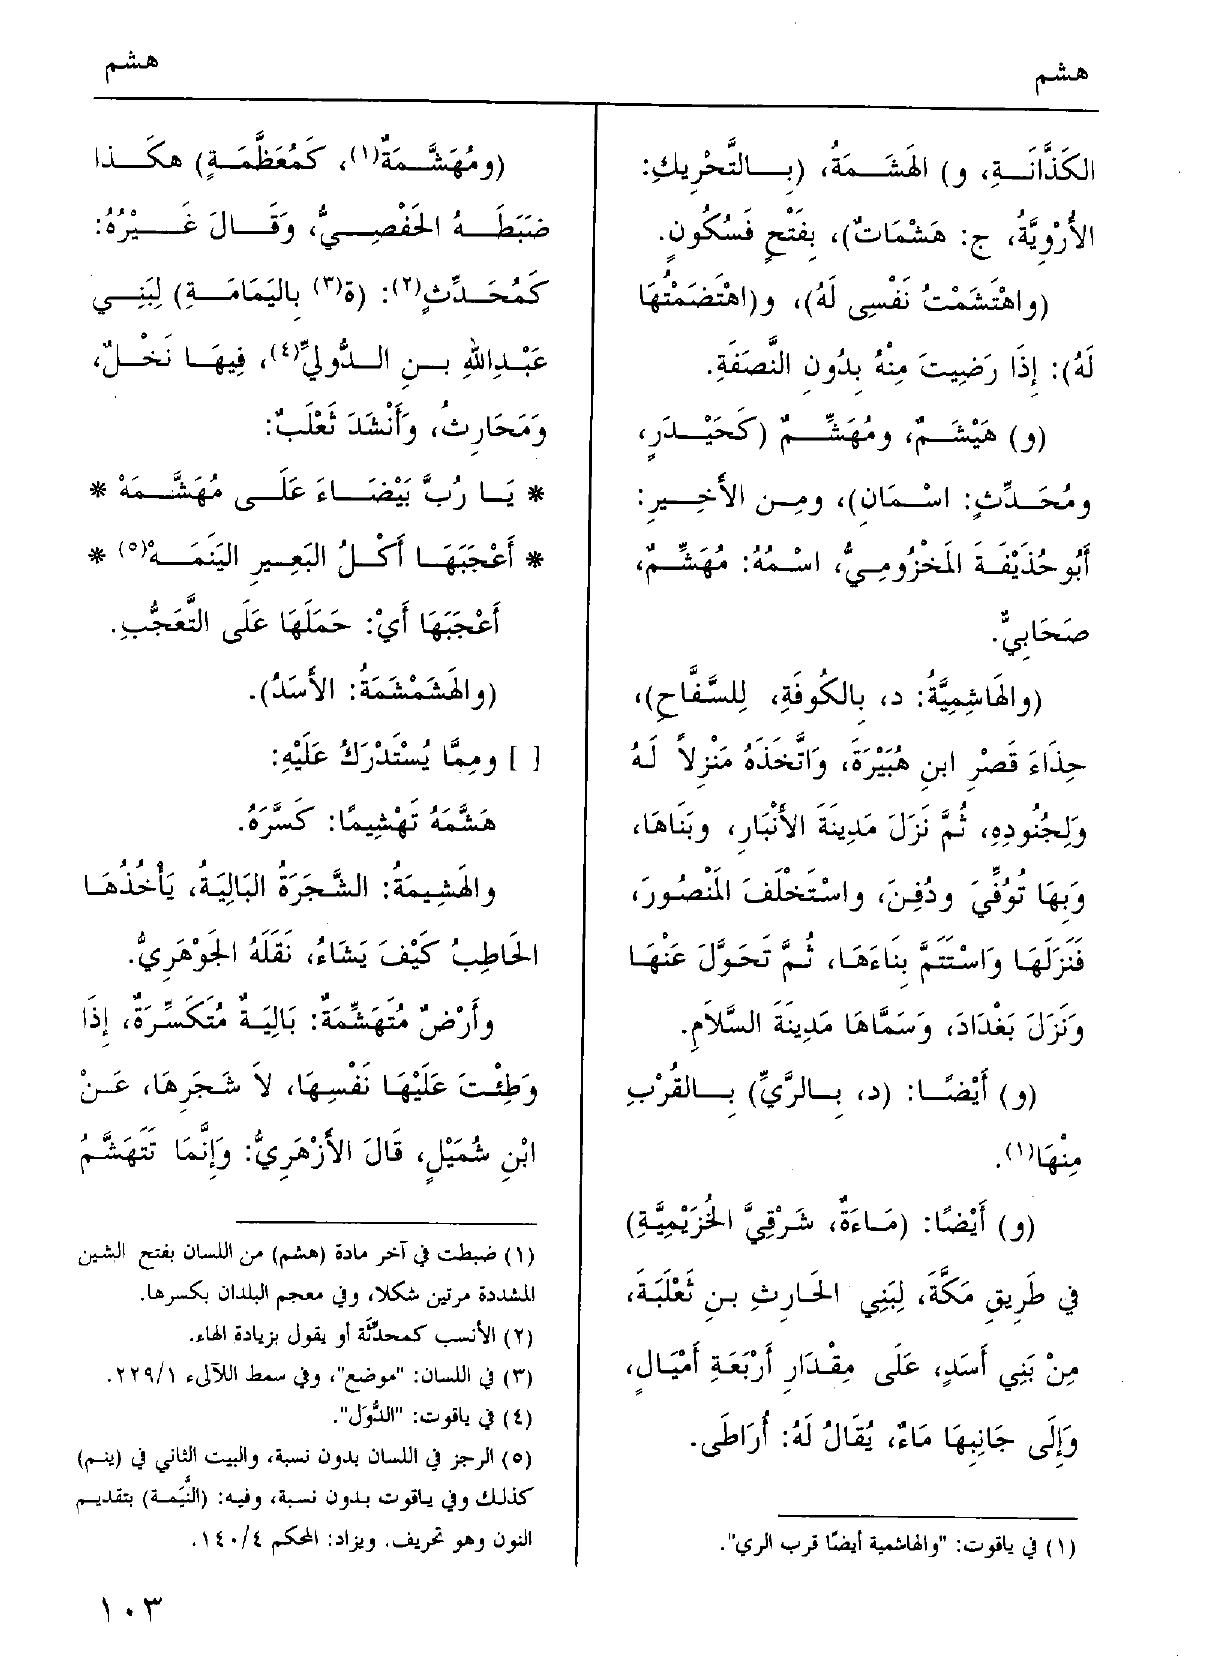 هشم
هشم
الكَذَّانَةِ، و) الهَشَمَةُ، (بِالتَّحْرِيكِ:
الأُرْوِيَّةُ، ج: هَشْمَاتٌ)، بِفَتْحٍ فَسُكُونٍ.
(واهْتَشَمْتُ نَفْسِى لَهُ)، و(اهْتَضَمْتُهَا
لَهُ): إِذَا رَضِيتَ مِنْهُ بِدُونِ النَّصَفَةِ.
(و) هَيْشَمٌ، ومُهَشِّمٌ (كَحَيْدَرٍ،
ومُحَدِّثٍ: اسْمَانِ)، ومِن الأَخِيرِ:
أَبُو حُذَيْفَةَ المَخْزُومِيُّ، اسْمُهُ: مُهَشِّمٌ،
صَحَابِيٌّ.
(والهَاشِمِيَّةُ: د، بِالكُوفَةِ، لِلسَّفَّاحِ)،
حِذَاءَ قَصْرِ ابنِ هُبَيْرَةَ، وَاتَّخَذَهُ مَنْزِلاً لَهُ
ولِجُنُودِهِ، ثُمَّ نَزَلَ مَدِينَةَ الأَنْبَارِ، وبَنَاهَا،
وَبِهَا تُوُفِّيَ ودُفِنَ، واسْتَخْلَفَ المَنْصُورَ،
فَنَزَلَهَا وَاسْتَتَمَّ بِنَاءَهَا، ثُمَّ تَحَوَّلَ عَنْهَا
وَنَزَلَ بَغْدَادَ، وَسَمَّاهَا مَدِينَةَ السَّلاَمِ.
(و) أَيْضًا: (د، بِالرَّيِّ) بِالقُرْبِ
مِنْهَا(١).
(و) أَيْضًا: (مَاءَةٌ، شَرْقِيَّ الخُزَيْمِيَّةِ)
في طَرِيقِ مَكَّةَ، لِبَنِي الحَارِثِ بنِ ثَعْلَبَةَ،
مِنْ بَنِي أَسَدٍ، عَلَى مِقْدَارِ أَرْبَعَةِ أَمْيَالٍ،
وَإِلَى جَانِبِهَا مَاءٌ، يُقَالُ لَهُ: أُرَاطَى.
(١) في ياقوت: "والهاشمية أيضًا قرب الري".
(ومُهَشَّمَةٌ(١)، كَمُعَظَّمَةٍ) هكَذا
ضَبَطَهُ الحَفْصِيُّ، وَقَالَ غَيْرُهُ:
كَمُحَدِّثٍ(٢): (ة(٣) بِاليَمَامَةِ) لِبَنِي
عَبْدِاللهِ بنِ الدُّولِيِّ(٤)، فِيهَا نَخْلٌ،
وَمَحَارِثُ، وَأَنْشَدَ ثَعْلَبٌ:
* يَا رُبَّ بَيْضَاءَ عَلَى مُهَشَّمَهْ *
* أَعْجَبَهَا أَكْلُ البَعِيرِ اليَنَمَهْ(٥) *
أَعْجَبَهَا أَيْ: حَمَلَهَا عَلَى التَّعَجُّبِ.
(والهَشَمْشَمَةُ: الأَسَدُ).
[ ] ومِمَّا يُسْتَدْرَكُ عَلَيْهِ:
هَشَّمَهُ تَهْشِيمًا: كَسَّرَهُ.
والهَشِيمَةُ: الشَّجَرَةُ البَالِيَةُ، يَأْخُذُهَا
الحَاطِبُ كَيْفَ يَشَاءُ، نَقَلَهُ الجَوْهَرِيُّ.
وأَرْضٌ مُتَهَشِّمَةٌ: بَالِيَةٌ مُتَكَسِّرَةٌ، إِذَا
وَطِئْتَ عَلَيْهَا نَفْسِهَا، لاَ شَجَرِهَا، عَنْ
ابْنِ شُمَيْلٍ، قَالَ الأَزْهَرِيُّ: وَإِنَّمَا تَتَهَشَّمُ
(١) ضبطت في آخر مادة (هشم) من اللسان بفتح الشين
المشددة مرتين شكلا، وفي معجم البلدان بكسرها.
(٢) الأنسب كمحدِّثة أو يقول بزيادة الهاء.
(٣) في اللسان: "موضع"، وفي سمط اللآلىء ٢٢٩/١.
(٤) في ياقوت: "الدُّوَل".
(٥) الرجز في اللسان بدون نسبة، والبيت الثاني في (ينم)
كذلك وفي ياقوت بدون نسبة، وفيه: (النَّيَمة) بتقديم
النون وهو تحريف. ويزاد: المحكم ١٤٠/٤.
١٠٣